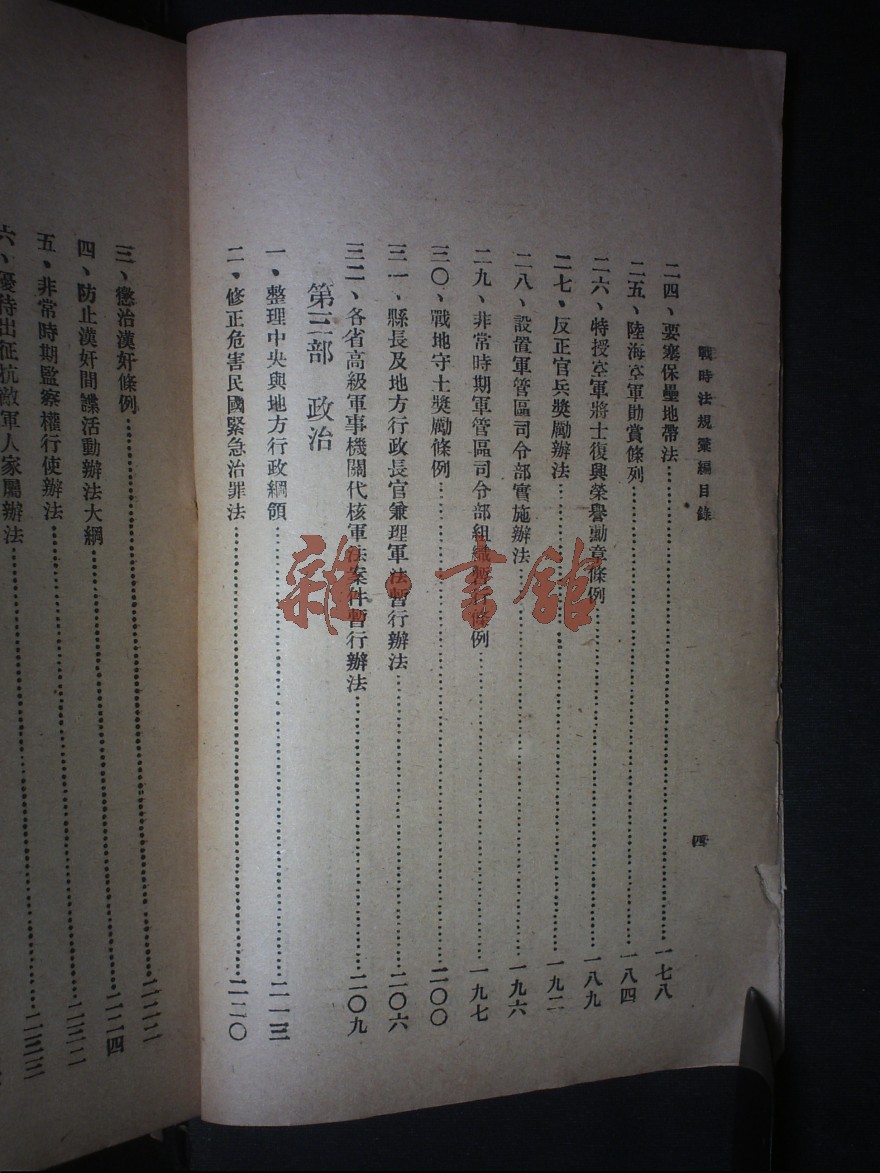 戰時法規彙編目錄
四
二四、要塞保壘地帶法 一七八
二五、陸海空軍勛賞條列 一八四
二六、特授空軍將士復興榮譽勳章條例 一八九
二七、反正官兵獎勵辦法 一九二
二八、設置軍管區司令部實施辦法 一九六
二九、非常時期軍管區司令部組織暫行條例 一九七
三〇、戰地守土獎勵條例 二〇〇
三一、縣長及地方行政長官兼理軍法暫行辦法 二〇六
三二、各省高級軍事機關代核軍法案件暫行辦法 二〇九
第三部 政治
一、整理中央與地方行政綱領 二一三
二、修正危害民國緊急治罪法 二二〇
三、懲治漢奸條例 二二二
四、防止漢奸間諜活動辦法大綱 二二四
五、非常時期監察權行使辦法 二三二
六、優待出征抗敵軍人家屬辦法 二三三
雜·書館